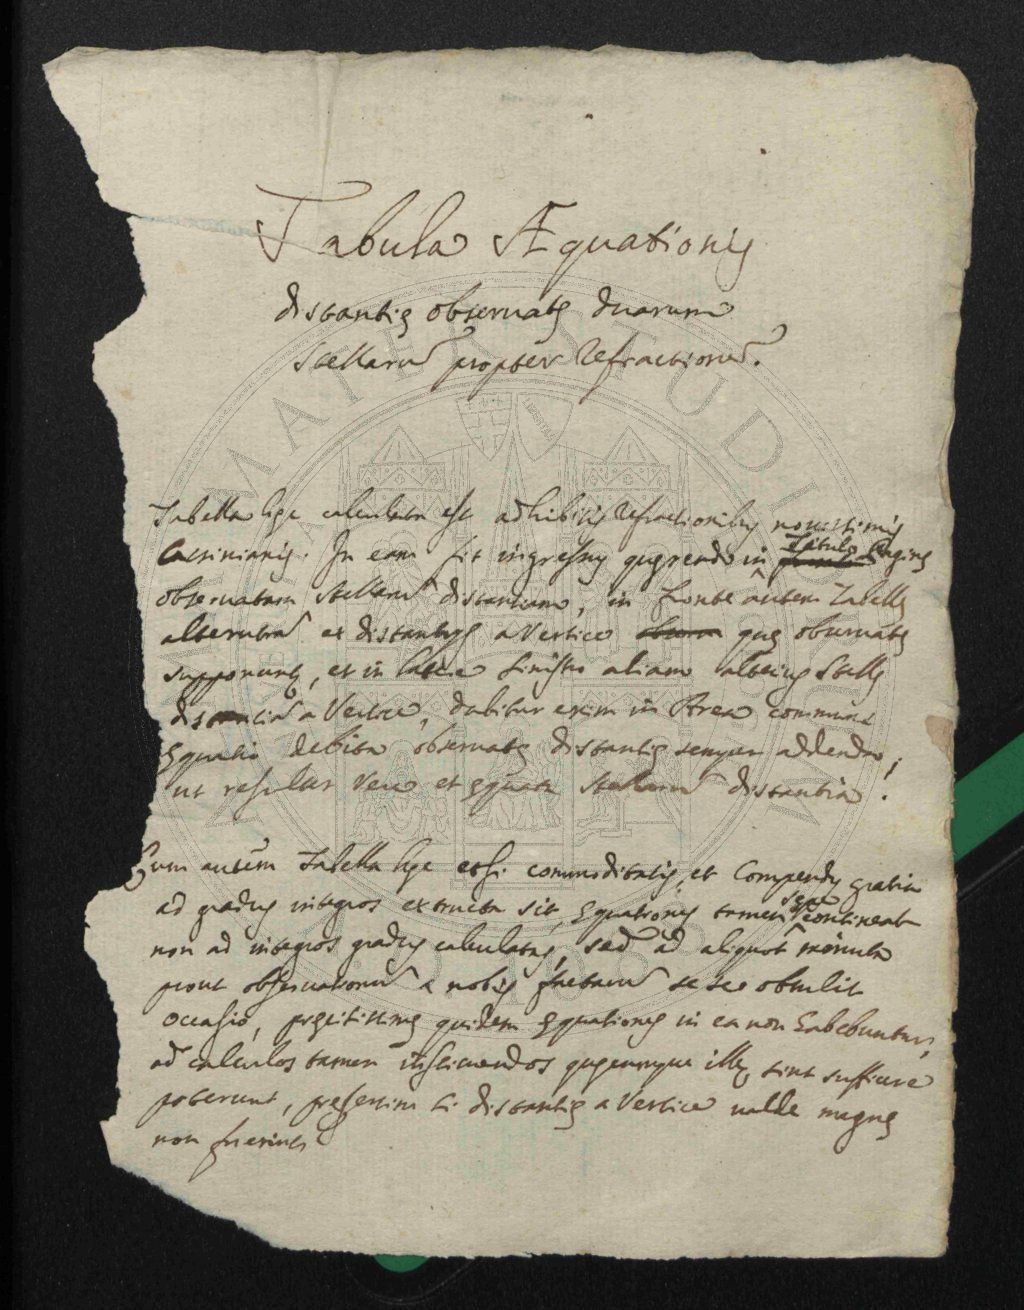 Tabula Æquationis
distantię obseruatę duarum
Stellarū propter Refractionē.
Tabella hęc calculata est adhibitis Refractionibus nouissimis
Cassinianis. In eam fit ingressus quęrendo in Titulo Paginę
obseruatam Stellarū distantiam, in fronte autem Tabellę
alterutrā ex distantijs a Vertice quę obseruatę
supponuntur, et in latere sinistro aliam alterius Stellę
distantiā a Vertice, dabitur enim in Area communi
Ęquatio debita obseruatę distantię semper addenda,
ut resultet vera et ęquata stellarum distantia.
Cum autem Tabella hęc etsi commoditatis, et Compendij gratia
ad gradus integros extructa sit, ęquationes tamen contineat
non ad integros gradus calculatas, sed ad aliquot minuta
prout obseruationū a nobis factarū sese obtulit
occasio, pręcisissimę quidem ęquationes in ea non habebuntur,
ad calculos tamen instituendos quęcunque illę sint sufficere
poterunt, pręsertim si distantię a Vertice ualde magnę
non fuerint